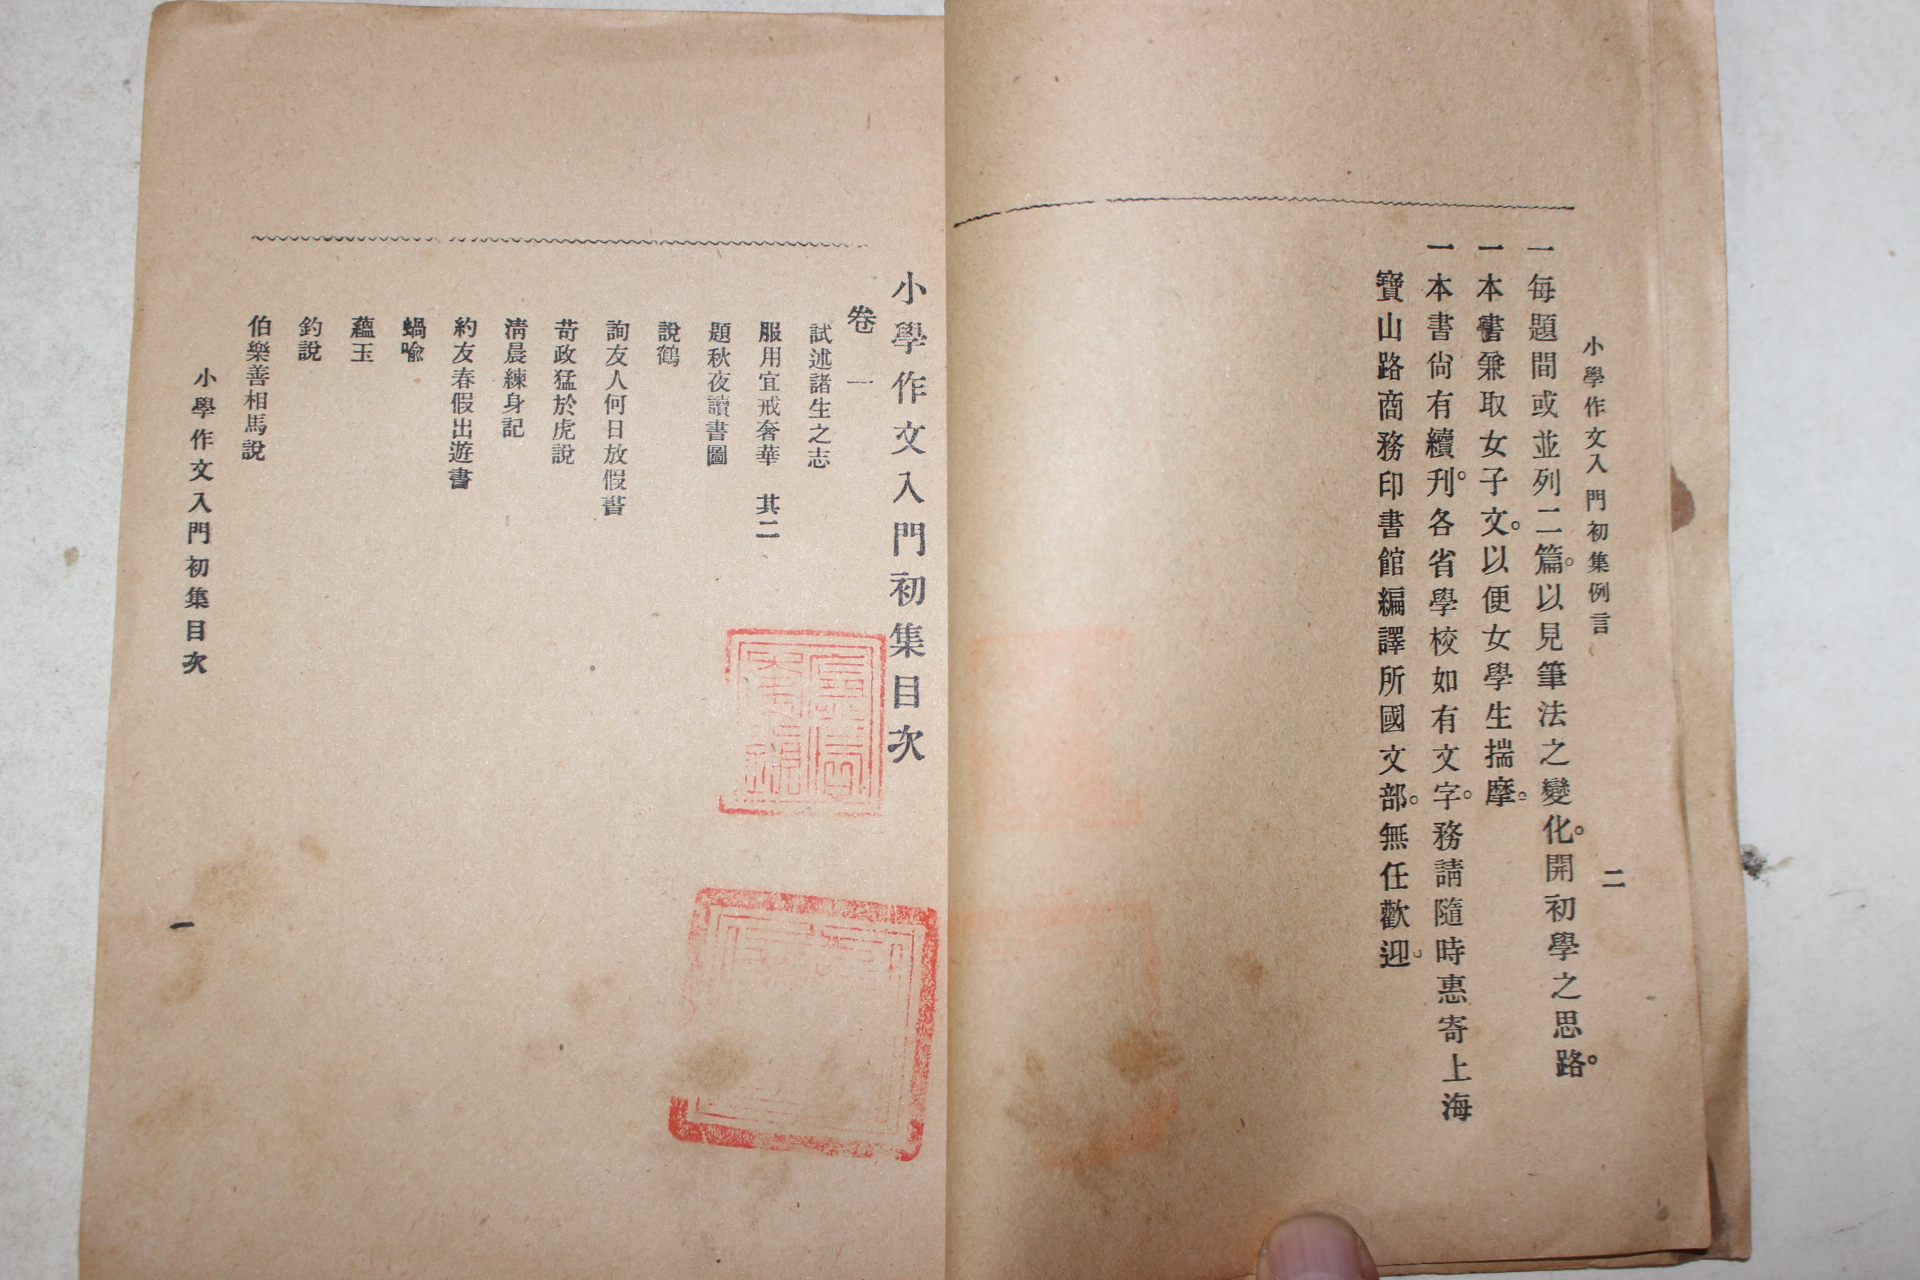 小學作文入門初集例言
二
一每題間或並列二篇。以見筆法之變化。開初學之思路。
一本書兼取女子文。以便女學生揣摩。
一本書尙有續刋。各省學校如有文字。務請隨時惠寄上海
寶山路商務印書館編譯所國文部。無任歡迎。
小學作文入門初集目次
卷一
試述諸生之志
服用宜戒奢華　其二
題秋夜讀書圖
說鶴
詢友人何日放假書
苛政猛於虎說
淸晨練身記
約友春假出遊書
蝸喩
蘊玉
釣說
伯樂善相馬說
小學作文入門初集目次
一